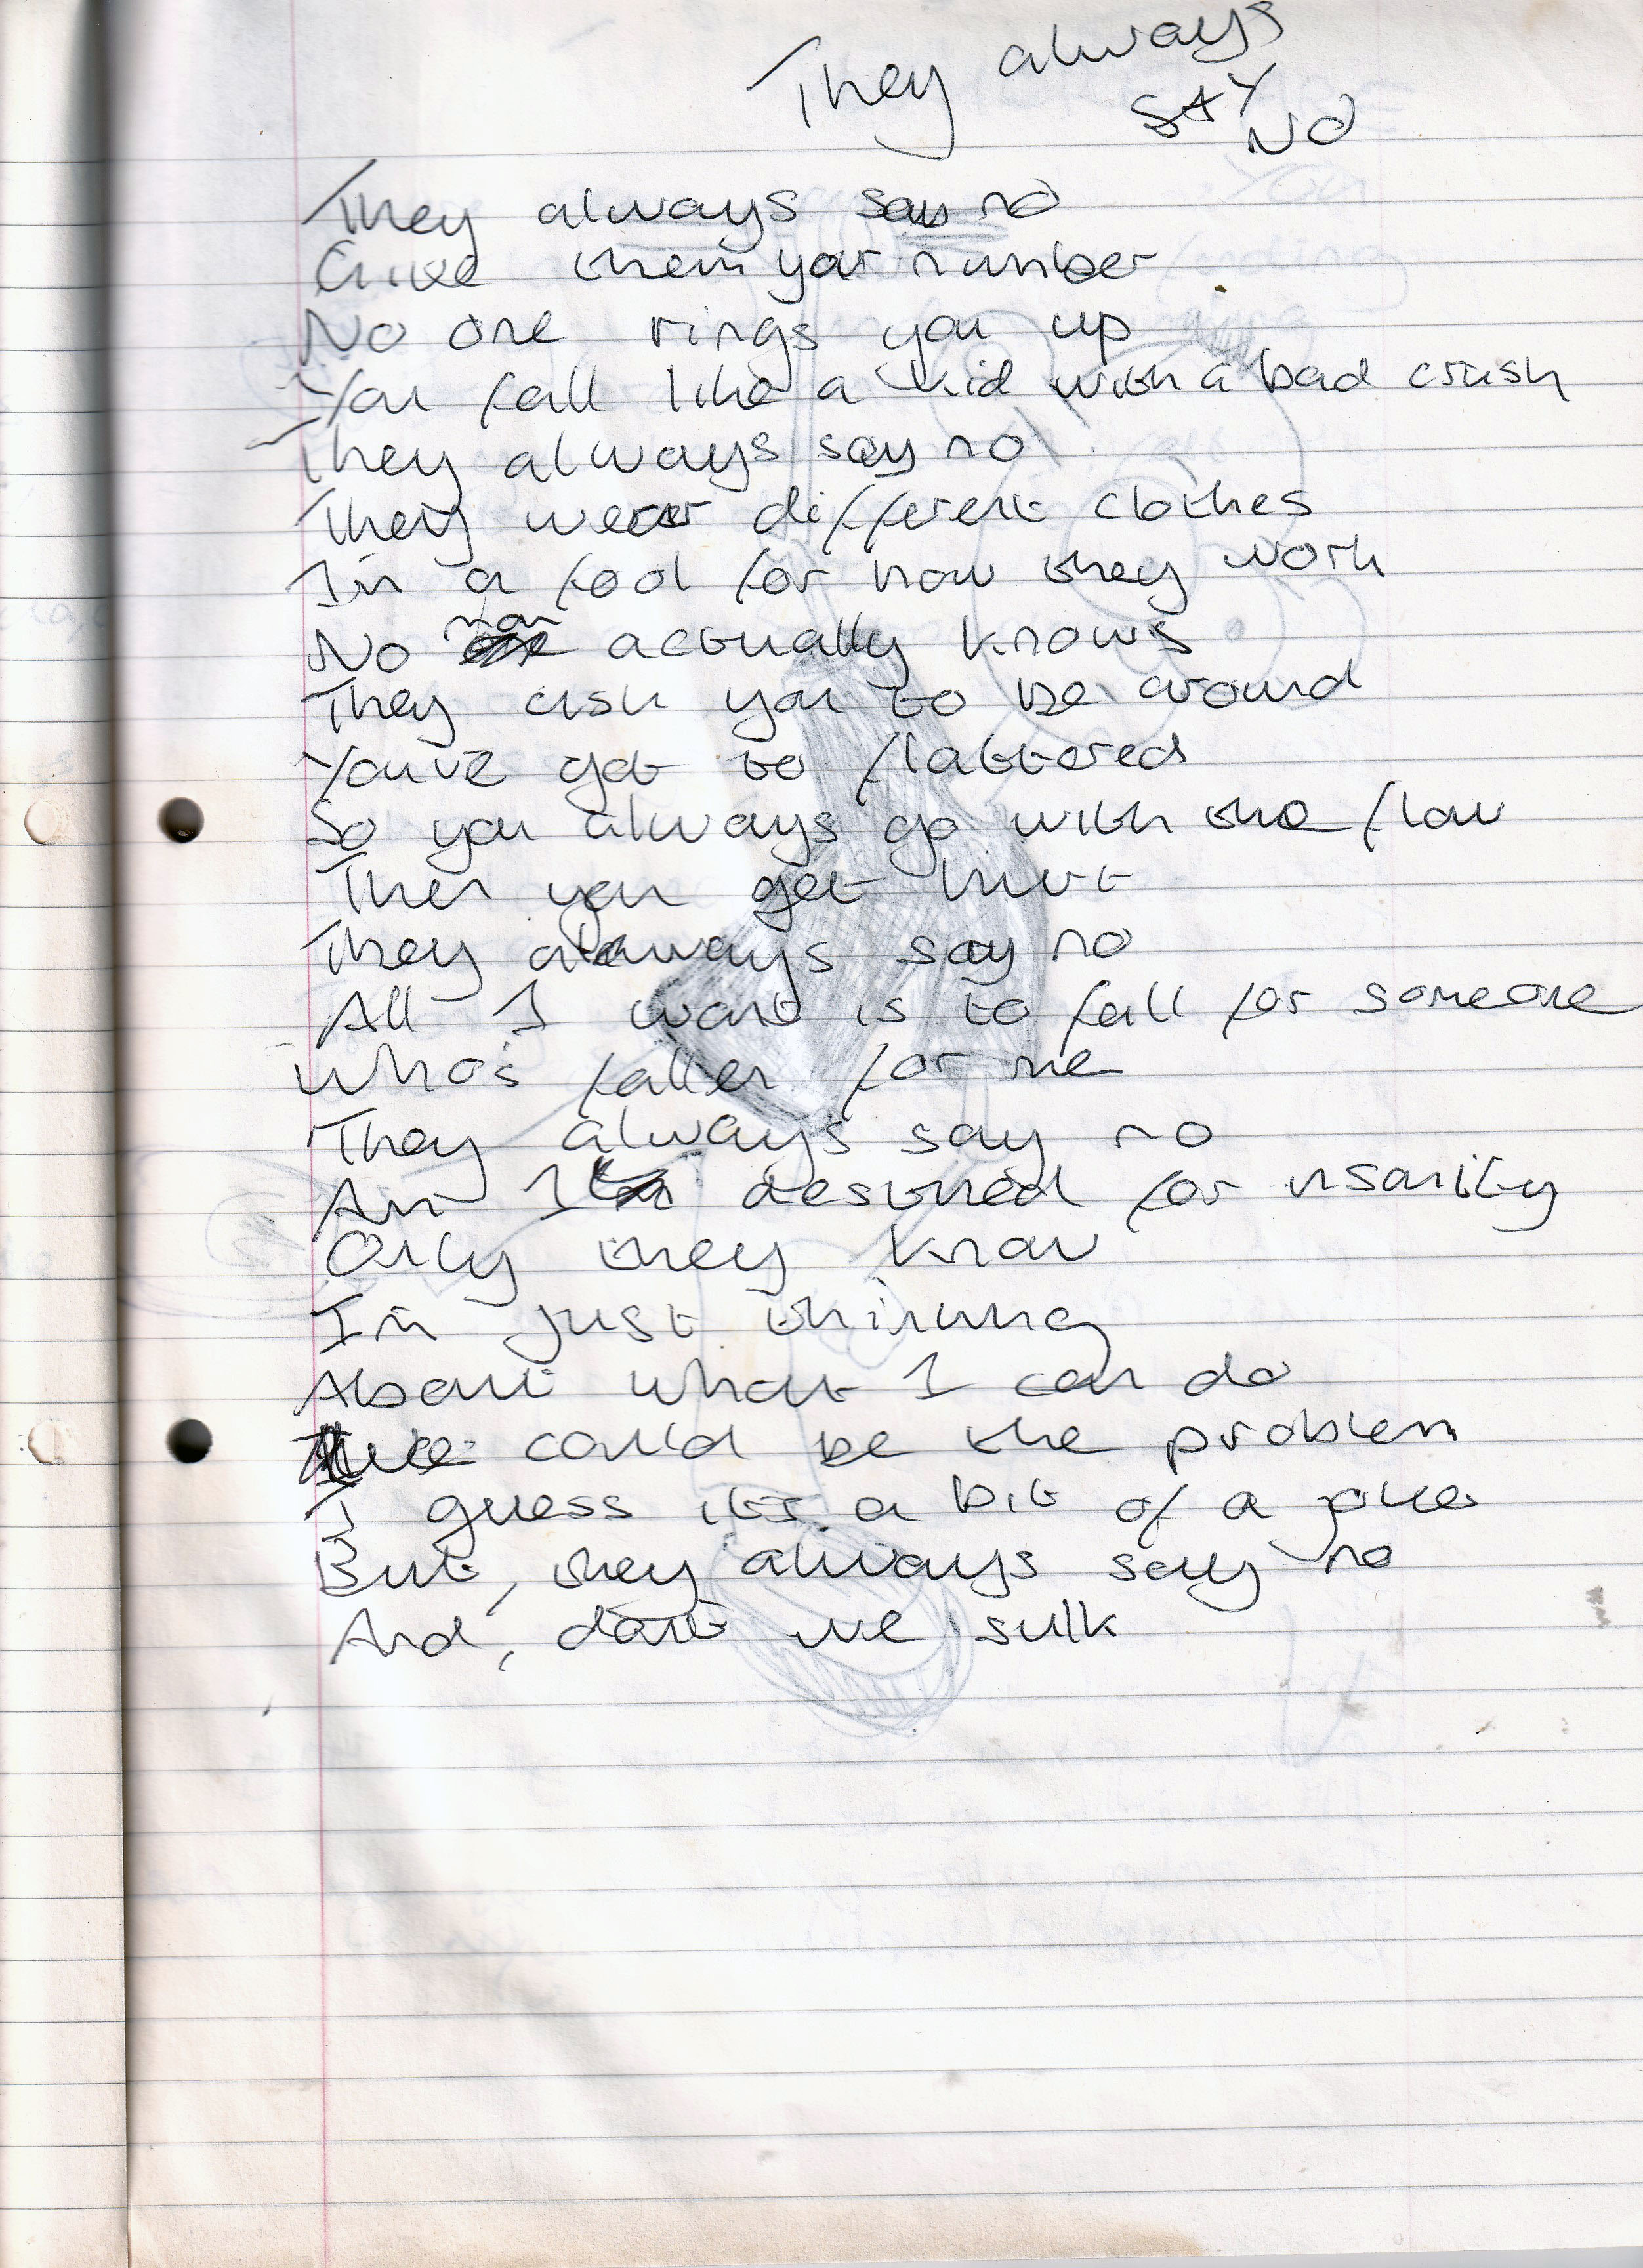 They always
SAY
NO
They always say no
Give them your number
No one rings you up
You fall like a kid with a bad crush
They always say no
They wear different clothes
Im a fool for how they work
No man actually knows
They ask you to be around
You've got to flattered
So you always go with the flow
Then you get hurt
They always say no
All I want is to fall for someone
Who's fallen for me
They always say no
Am I destined for insanity
Only they know
I'm just thinking
About what I can do
could be the problem
I guess its a bit of a joke
But, they always say no
And, don't we sulk